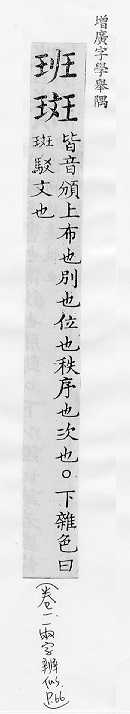 增廣字學舉隅
班斑
皆音頒上布也別也位也秩序也次也。下雜色曰
斑駁文也
(卷二.兩字辨似.P.66)